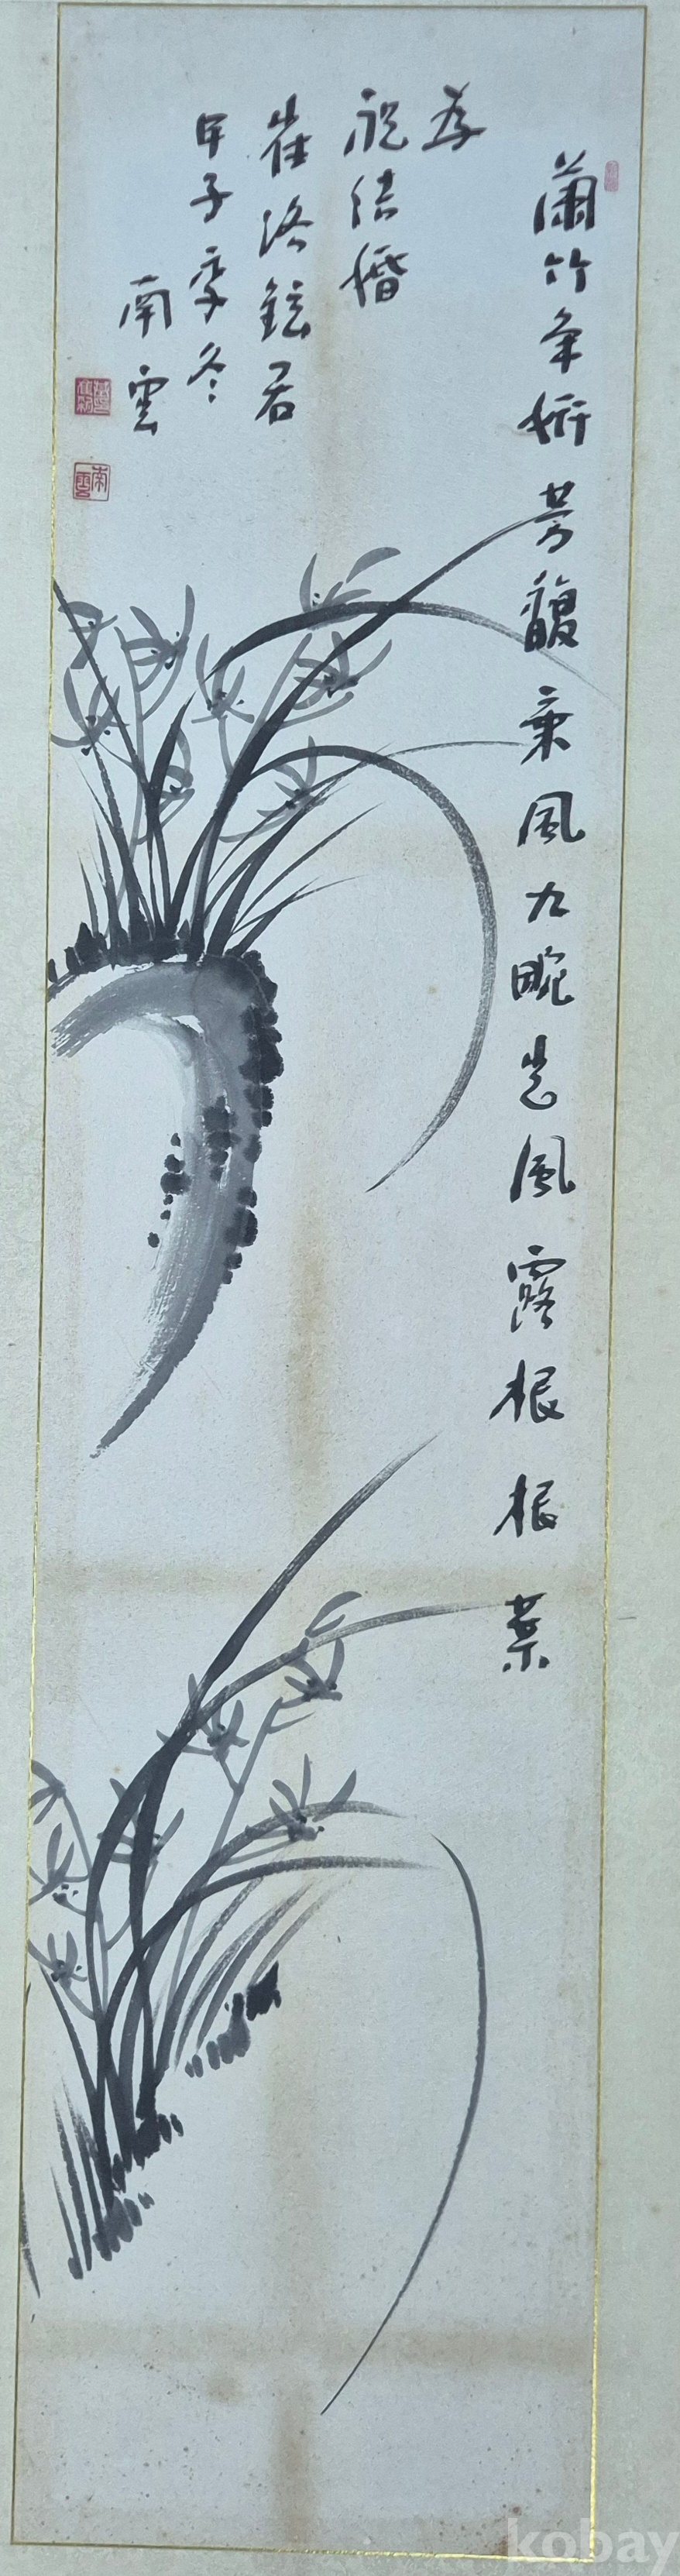 蘭竹争妍芳馥乘風九畹光風露根根葉
奉
祝結婚
崔洛鉉君
甲子季冬
南雲
南雲
kobay